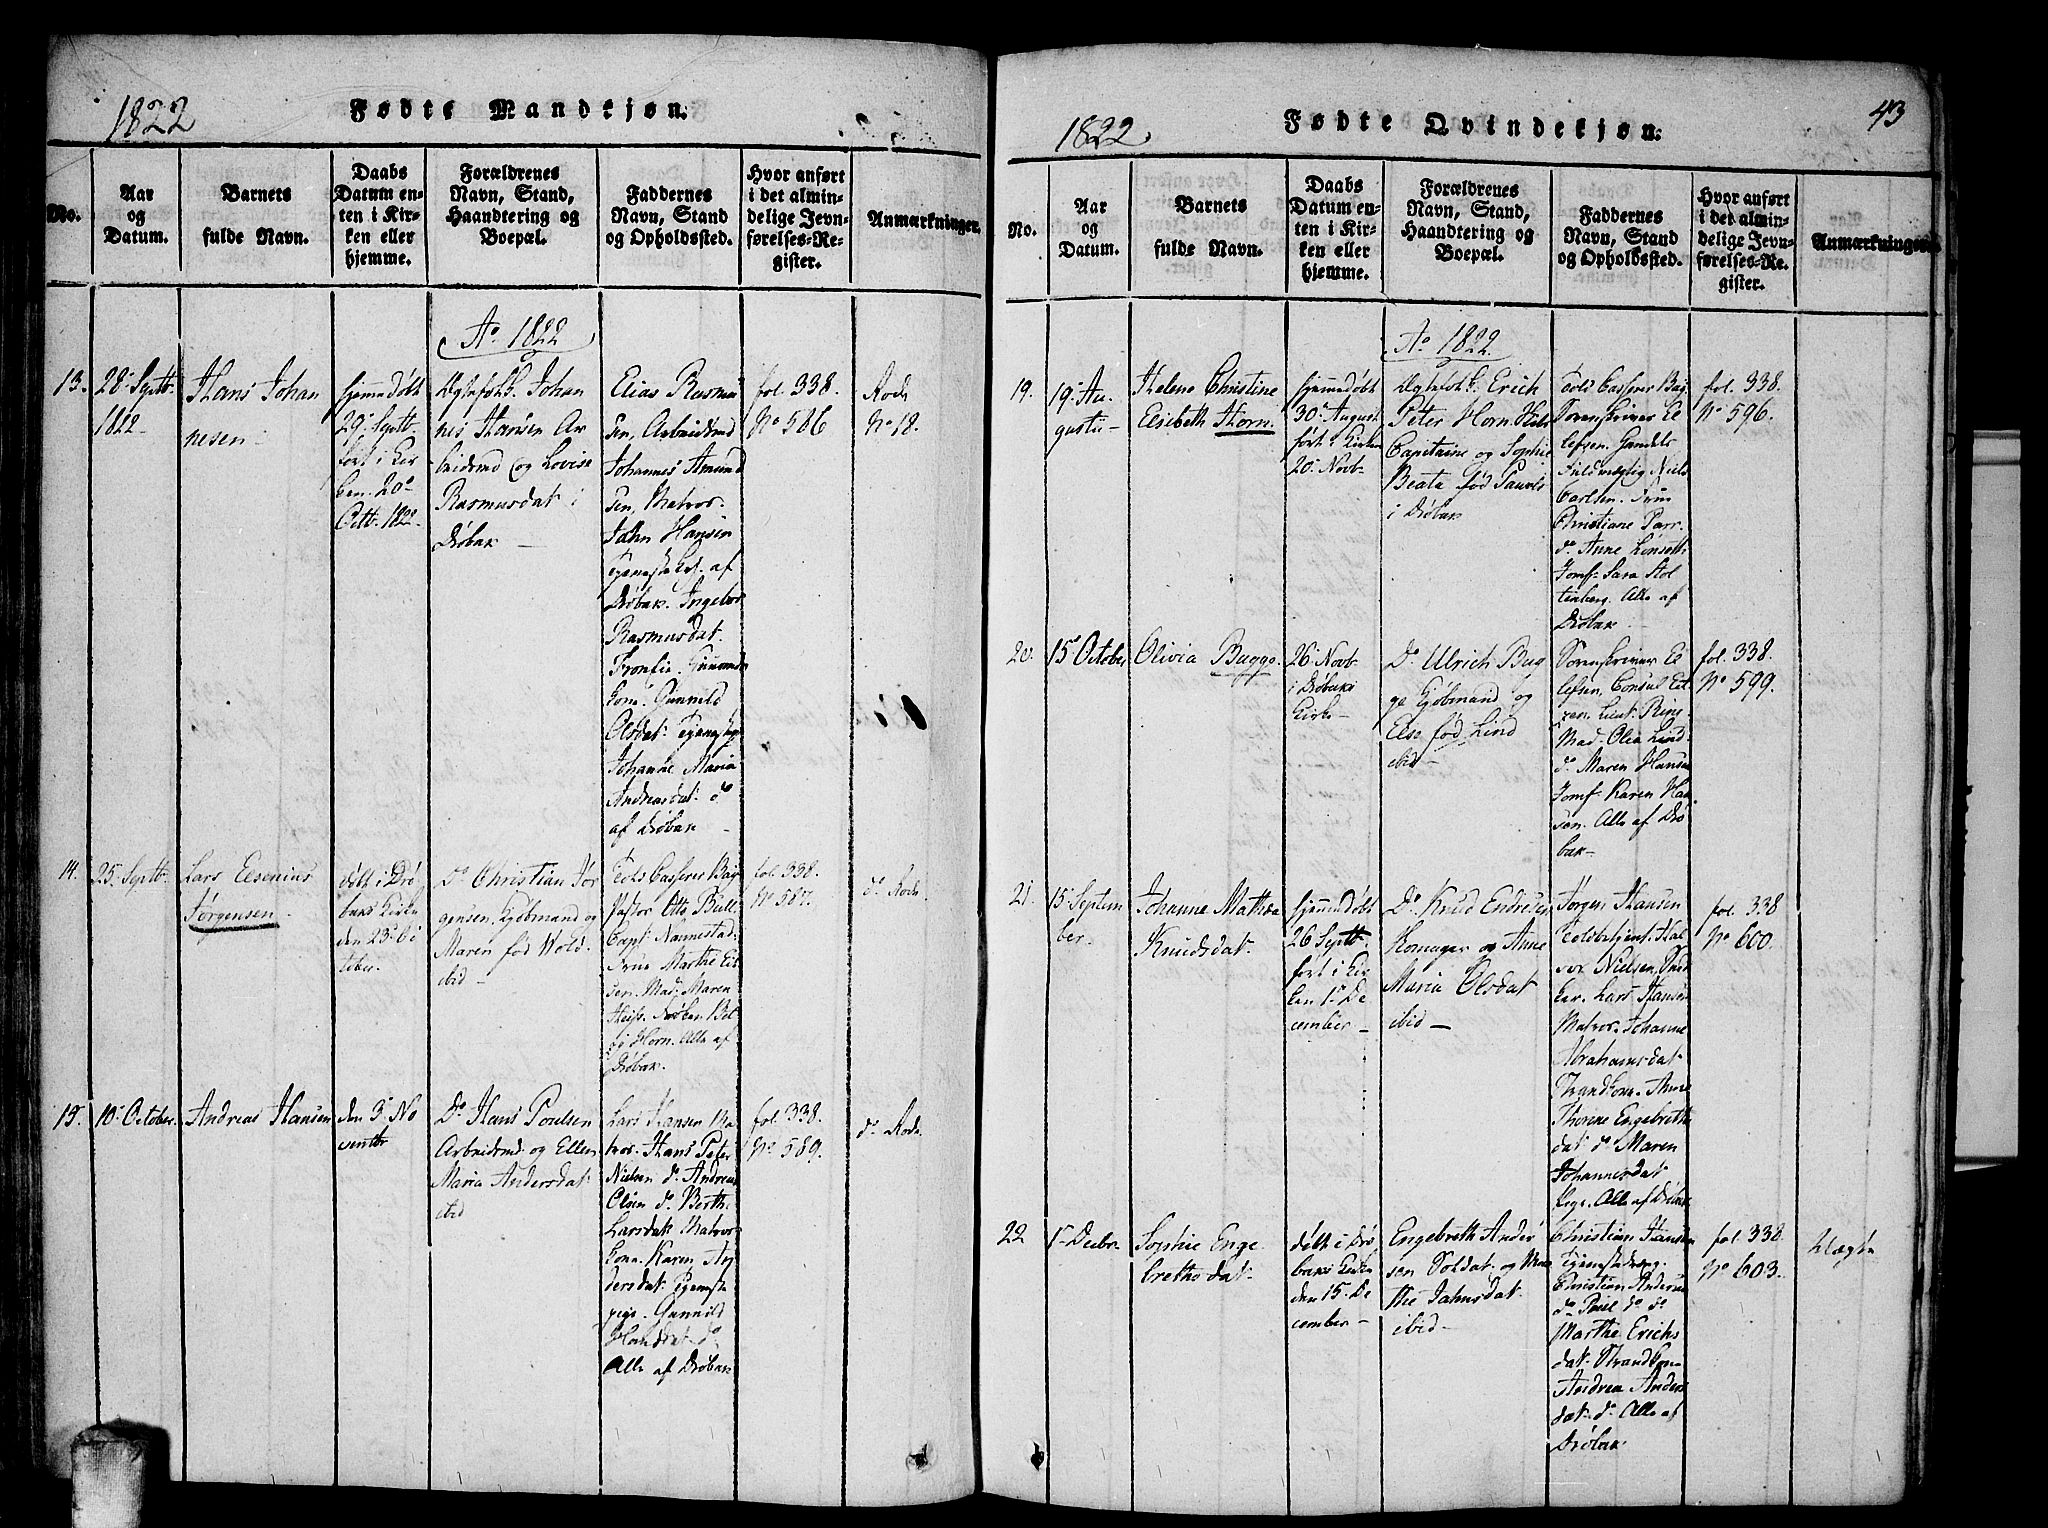 1822
Fødte Mandkjøn.
No.
Aar
og
Datum.
Barnets
fulde Navn.
Daabs
Datum en-
ten i Kir-
ken eller
hjemme.
Forældrenes
Navn, Stand,
Haandtering og
Boepæl.
Faddernes
Navn, Stand
og Opholdssted.
Hvor anført
i det almin-
delige Jevn-
førelses-Re-
gister.
Anmærkninger.
Ao 1822
13.
28. Septbr
1822
Hans Johan
nesen
hjemmedøbt
29. Septbr.
ført i Kir
ken 20de
Octbr 1822
Ægtefolk Johan
nes Hansen Ar
beidsmd og Lovise
Rasmusdat i
Drøbak
Elias Rasmu
sen, Arbeidsmd
Johannes Amund
sen, Matros.
John Hansen
af
Drøbak. Ingebor
Rasmusdat.
kone. Gunnild
Olsdat. Tjenestep
Johanne Maria
Andreasdat. do
af Drøbak
fol. 338.
No 586
Rode
No 18.
14.
25. Septbr
Lars Elsenius
Jørgensen
døbt i Drø
baks Kirke
den 23de Oc
tober.
Do Christian Jør
gensen, Kjøbmand og
Maren fød Wold.
ibid
Tolds Casserer
Pastor Otto Bull.
Capt. Nannestad.
Frue Marthe Eit
zen. Mad. Maren
Horn. Alle af
Drøbak.
fol. 338.
No 587.
do Rode
15.
10. October
Andreas Hansen
den 3de No
vembr
Do Hans Poulsen
Arbeidsmd og Ellen
Maria Andersdat
ibid
Lars Hansen Ma
tros. Hans Peter
Nielsen do Andreas
Olsen do Berthe
Larsdat Matros
kone. Karen An
dersdat Tjeneste
pige. Gunnild
do
Alle af Drøbak
fol. 338.
No 589.
do Rode
1822
Fødte Qvindekjøn.
43
No.
Aar
og
Datum.
Barnets
fulde Navn.
Daabs
Datum en-
ten i Kir-
ken eller
hjemme.
Forældrenes
Navn, Stand,
Haandtering og
Boepæl.
Faddernes
Navn, Stand
og Opholdssted.
Hvor anført
i det almin-
delige Jevn-
førelses-Re-
gister.
Anmærkninger.
Ao 1822
19.
19. Au
gusti
Helene Christine
Elisbeth Horn.
hjemmedøbt
30. August
ført i Kirken
20. Novbr
Ægtefolk Erich
Peter Horn
Capitaine og Sophie
Beata fød
i Drøbak
Tolds Casserer
Sorenskriver El
lefsen.
Fuldmægtig Niels
Carlsen. Frue
Christiane Parr.
do Anne
Jomf. Sara Stol
tenberg. Alle af
Drøbak
fol. 338.
No 596.
20.
15de October
Olivia Bugge.
26. Novbr
i Drøbaks
Kirke
Do Ulrich Bug
ge Kjøbmand og
Else fød Lind
ibid
Sorenskriver El
lefsen, Consul Eit
zen. Lieut.
Mad. Olea Lind
do Maren Hansen
Jomf. Karen Han
sen. Alle af Drø
bak
fol. 338.
No 599.
21.
15. Septem
ber.
Johanne Mathea
Knudsdat.
hjemmedøbt
26 Septbr.
ført i Kir
ken 1. De
cember
Do Knud Endresen
og Anne
Maria Olsdat
ibid
Jørgen Hansen
Toldbetjent. Hal
vor Nielsen, Sned
ker. Lars Hansen
Matros. Johanne
Abrahamsdat
Strandkone. Anne
Thorine Engebreths
dat do Maren
Johannesdat
Pige. Alle af Drøbak
fol. 338
No 600.
22
1. Decbr
Sophie Enge
brethsdat.
døbt i Drø
baks Kirke
den 15. De
cember
Engebreth Ander
sen Soldat og Mar
the Jahnsdat.
ibid
Christian Hansen
Tjenestedreng.
Christian Andersen
do Poul do do
Marthe Erichs
dat. Strandkone
Andrea Anders
dat. do Alle af
Drøbak
fol. 338.
No 603.
Uægte